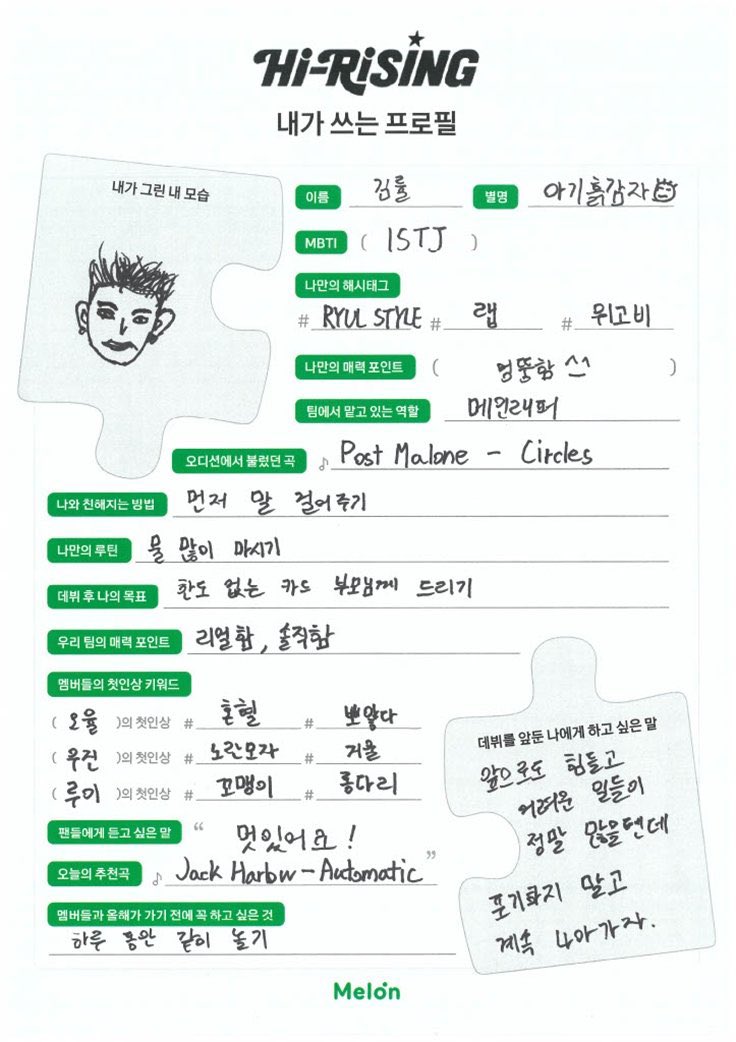 Hi-RiSiNG
내가 쓰는 프로필
내가 그린 내 모습
이름 김률 별명 아기흙감자
MBTI ( ISTJ )
나만의 해시태그
# RYUL STYLE # 랩 # 위고비
나만의 매력 포인트 ( 엉뚱함 ^^ )
팀에서 맡고 있는 역할 메인래퍼
오디션에서 불렀던 곡 ♪ Post Malone - Circles
나와 친해지는 방법 먼저 말 걸어주기
나만의 루틴 물 많이 마시기
데뷔 후 나의 목표 한도 없는 카드 부모님께 드리기
우리 팀의 매력 포인트 리얼함, 솔직함
멤버들의 첫인상 키워드
( 오율 )의 첫인상 # 혼혈 # 뽀얗다
( 우진 )의 첫인상 # 노란모자 # 거울
( 루이 )의 첫인상 # 꼬맹이 # 롱다리
팬들에게 듣고 싶은 말 “ 멋있어요! ”
오늘의 추천곡 ♪ Jack Harlow - Automatic
멤버들과 올해가 가기 전에 꼭 하고 싶은 것
하루 동안 같이 놀기
데뷔를 앞둔 나에게 하고 싶은 말
앞으로도 힘들고
어려운 일들이
정말 많을텐데
포기하지 말고
계속 나아가자.
Melon